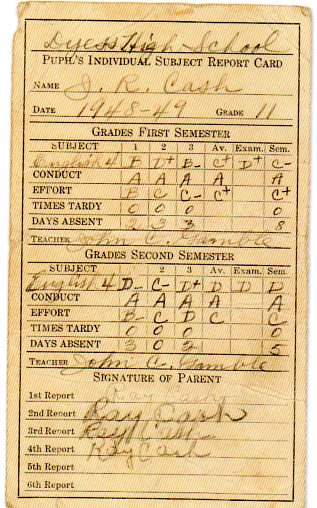 Dyess High School
PUPIL'S INDIVIDUAL SUBJECT REPORT CARD
NAME J. R. Cash
DATE 1948-49 GRADE 11
GRADES FIRST SEMESTER
SUBJECT 1 2 3 Av. Exam. Sem.
English 4 B D+ B- C+ D+ C-
CONDUCT A A A A A
EFFORT B C C- C+ C+
TIMES TARDY 0 0 0 0
DAYS ABSENT 2 3 3 8
TEACHER John C. Gamble
GRADES SECOND SEMESTER
SUBJECT 1 2 3 Av. Exam. Sem.
English 4 D- C- D+ D D D
CONDUCT A A A A A
EFFORT B- C D C C
TIMES TARDY 0 0 0 0
DAYS ABSENT 3 0 2 5
TEACHER John C. Gamble
SIGNATURE OF PARENT
1st Report Ray Cash
2nd Report Ray Cash
3rd Report Ray Cash
4th Report Ray Cash
5th Report
6th Report